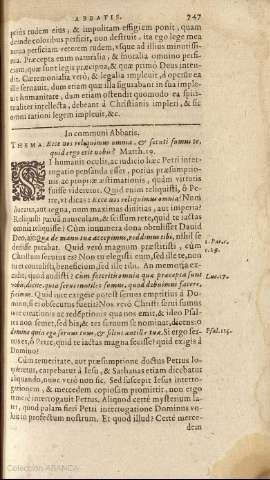 ABBATIS. 747
prius rudem eius, & impolitam effigiem ponit, quam
deinde coloribus perficit, non destruit, ita ego lege mea
noua perficiam veterem rudem, vsque ad illius minutissi-
ma. Præcepta enim naturalia, & moralia omnino perfi-
ciam, quæ sunt legis præcipua, & quæ primò Deus inten-
dit. Cæremonialia verò, & legalia impleuit,
ille seruauit, dum etiam quæ illa figurabant in sua imple-
uit humanitate, dum etiam ostendit quomodo ea spiri-
tualiter intellecta, debeant à Christianis impleri, & sic
omni rationi legem impleuit, &c.
In communi Abbatis.
THEMA. Ecce nos reliquimus omnia, & secuti sumus te,
quid ergo erit nobis? Matth. 19.
SI humanis oculis, ac iudicio hæc Petri inter-
rogatio pensanda esset, potiùs præsumptio-
nis ac propriæ æstimationis, quàm virtutis
fuisse videretur. Quid enim reliquisti, ô Pe-
tre, vt dicas: Ecce nos reliquimus omnia? Num
lucatus, aut regna, num maximas diuitias, aut imperia?
Reliquisti parua nauiculam, & scissum rete, quid te iactas
omnia reliquisse? Cùm innumera dona obtulisset Dauid
Deo, aitque de manu tua accepimus, reddimus tibi, nihil se
dedisse putabat. Quid verò magnum præstitisti, cùm
Christum secutus es? Non tu elegisti eum, sed ille te, non
tuis consilijs, beneficium, sed illi
cidit, quod audisti? Cùm feceritis omnia quæ præcepta sunt
vobis, dicite, quia serui inutiles sumus, quod debuimus facere,
fecimus. Quid nunc exigere potest seruus emptitius à Do-
mino, si ei obsecutus fuerit? Nos verò Christi serui sumus
iure creationis ac redemptionis qua nos emit, & ideo Psal-
tes non semel, sed bis, & ter seruum se nominat, dicens: ô
Domine quia ego seruus tuus, ego seruus tuus. Si ergo ser-
uus es, ô Petre, quid te iactas magna fecisse? quid exigis à
Domino?
Cùm temeritate, aut præsumptione dictus Petrus lo-
queretur, carpebatur à Iesu, & Sathanas etiam dicebatur
aliquando, nunc verò non sic. Sed suscepit Iesus interro-
gationem, & mercedem copiosam promittit, non ergo
temere interrogauit Petrus. Aliquod certè mysterium la-
tet, quod palam fieri Petri interrogatione Dominus vo-
luit in profectum nostrum. Et quod illud? Certè merce-
dem
1. Par. c.
29.
Luc. 17.
Psal. 115.
Colección ABANCA